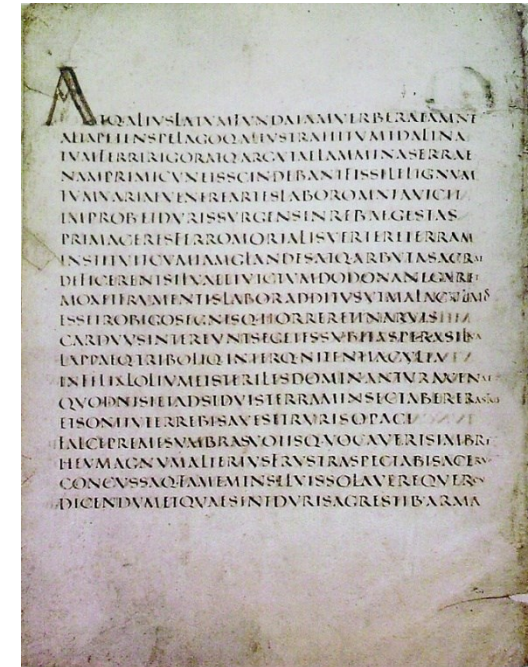 ATQ·ALIVSLATVMFVNDAIAMVERBERATAMNE
ALTAPETENSPELAGOQ·ALIVSTRAHITVMIDALINA
TVMFERRIRIGORATQ·ARGVTAELAMMINASERRAE
NAMPRIMICVNEISSCINDEBANTFISSILELIGNVM
TVMVARIAEVENEREARTESLABOROMNIAVICIT
IMPROBETDVRISSVRGENSINREBVSEGESTAS
PRIMACERESFERROMORTALISVERTERETERRAM
INSTITVITCVMIAMGLANDESATQ·ARBVTASACRAE
DEFICERENTSILVAEETVICTVMDODONANEGARET
MOXETFRVMENTISLABORADDITVSVTMALACVLMOS
ESSETROBIGOSEGNISQ·HORRERETINARVIS
CARDVVSINTEREVNTSEGETESSVBITASPERASILVA
LAPPAEQ·TRIBOLIQ·INTERQ·NITENTIACVLTA
INFELIXLOLIVMETSTERILESDOMINANTVRAVENAE
QVODNISIETADSIDVISTERRAMINSECTABERERASTRIS
ETSONITVTERREBISAVESETRVRISOPACI
FALCEPREMESVMBRASVOTISQ·VOCAVERISIMBRE
HEVMAGNVMALTERIVSFRVSTRASPECTABISACERVV
CONCVSSAQ·FAMEMINSILVISSOLAVEREQVERCV
DICENDVMETQVAESINTDVRISAGRESTIB·ARMA